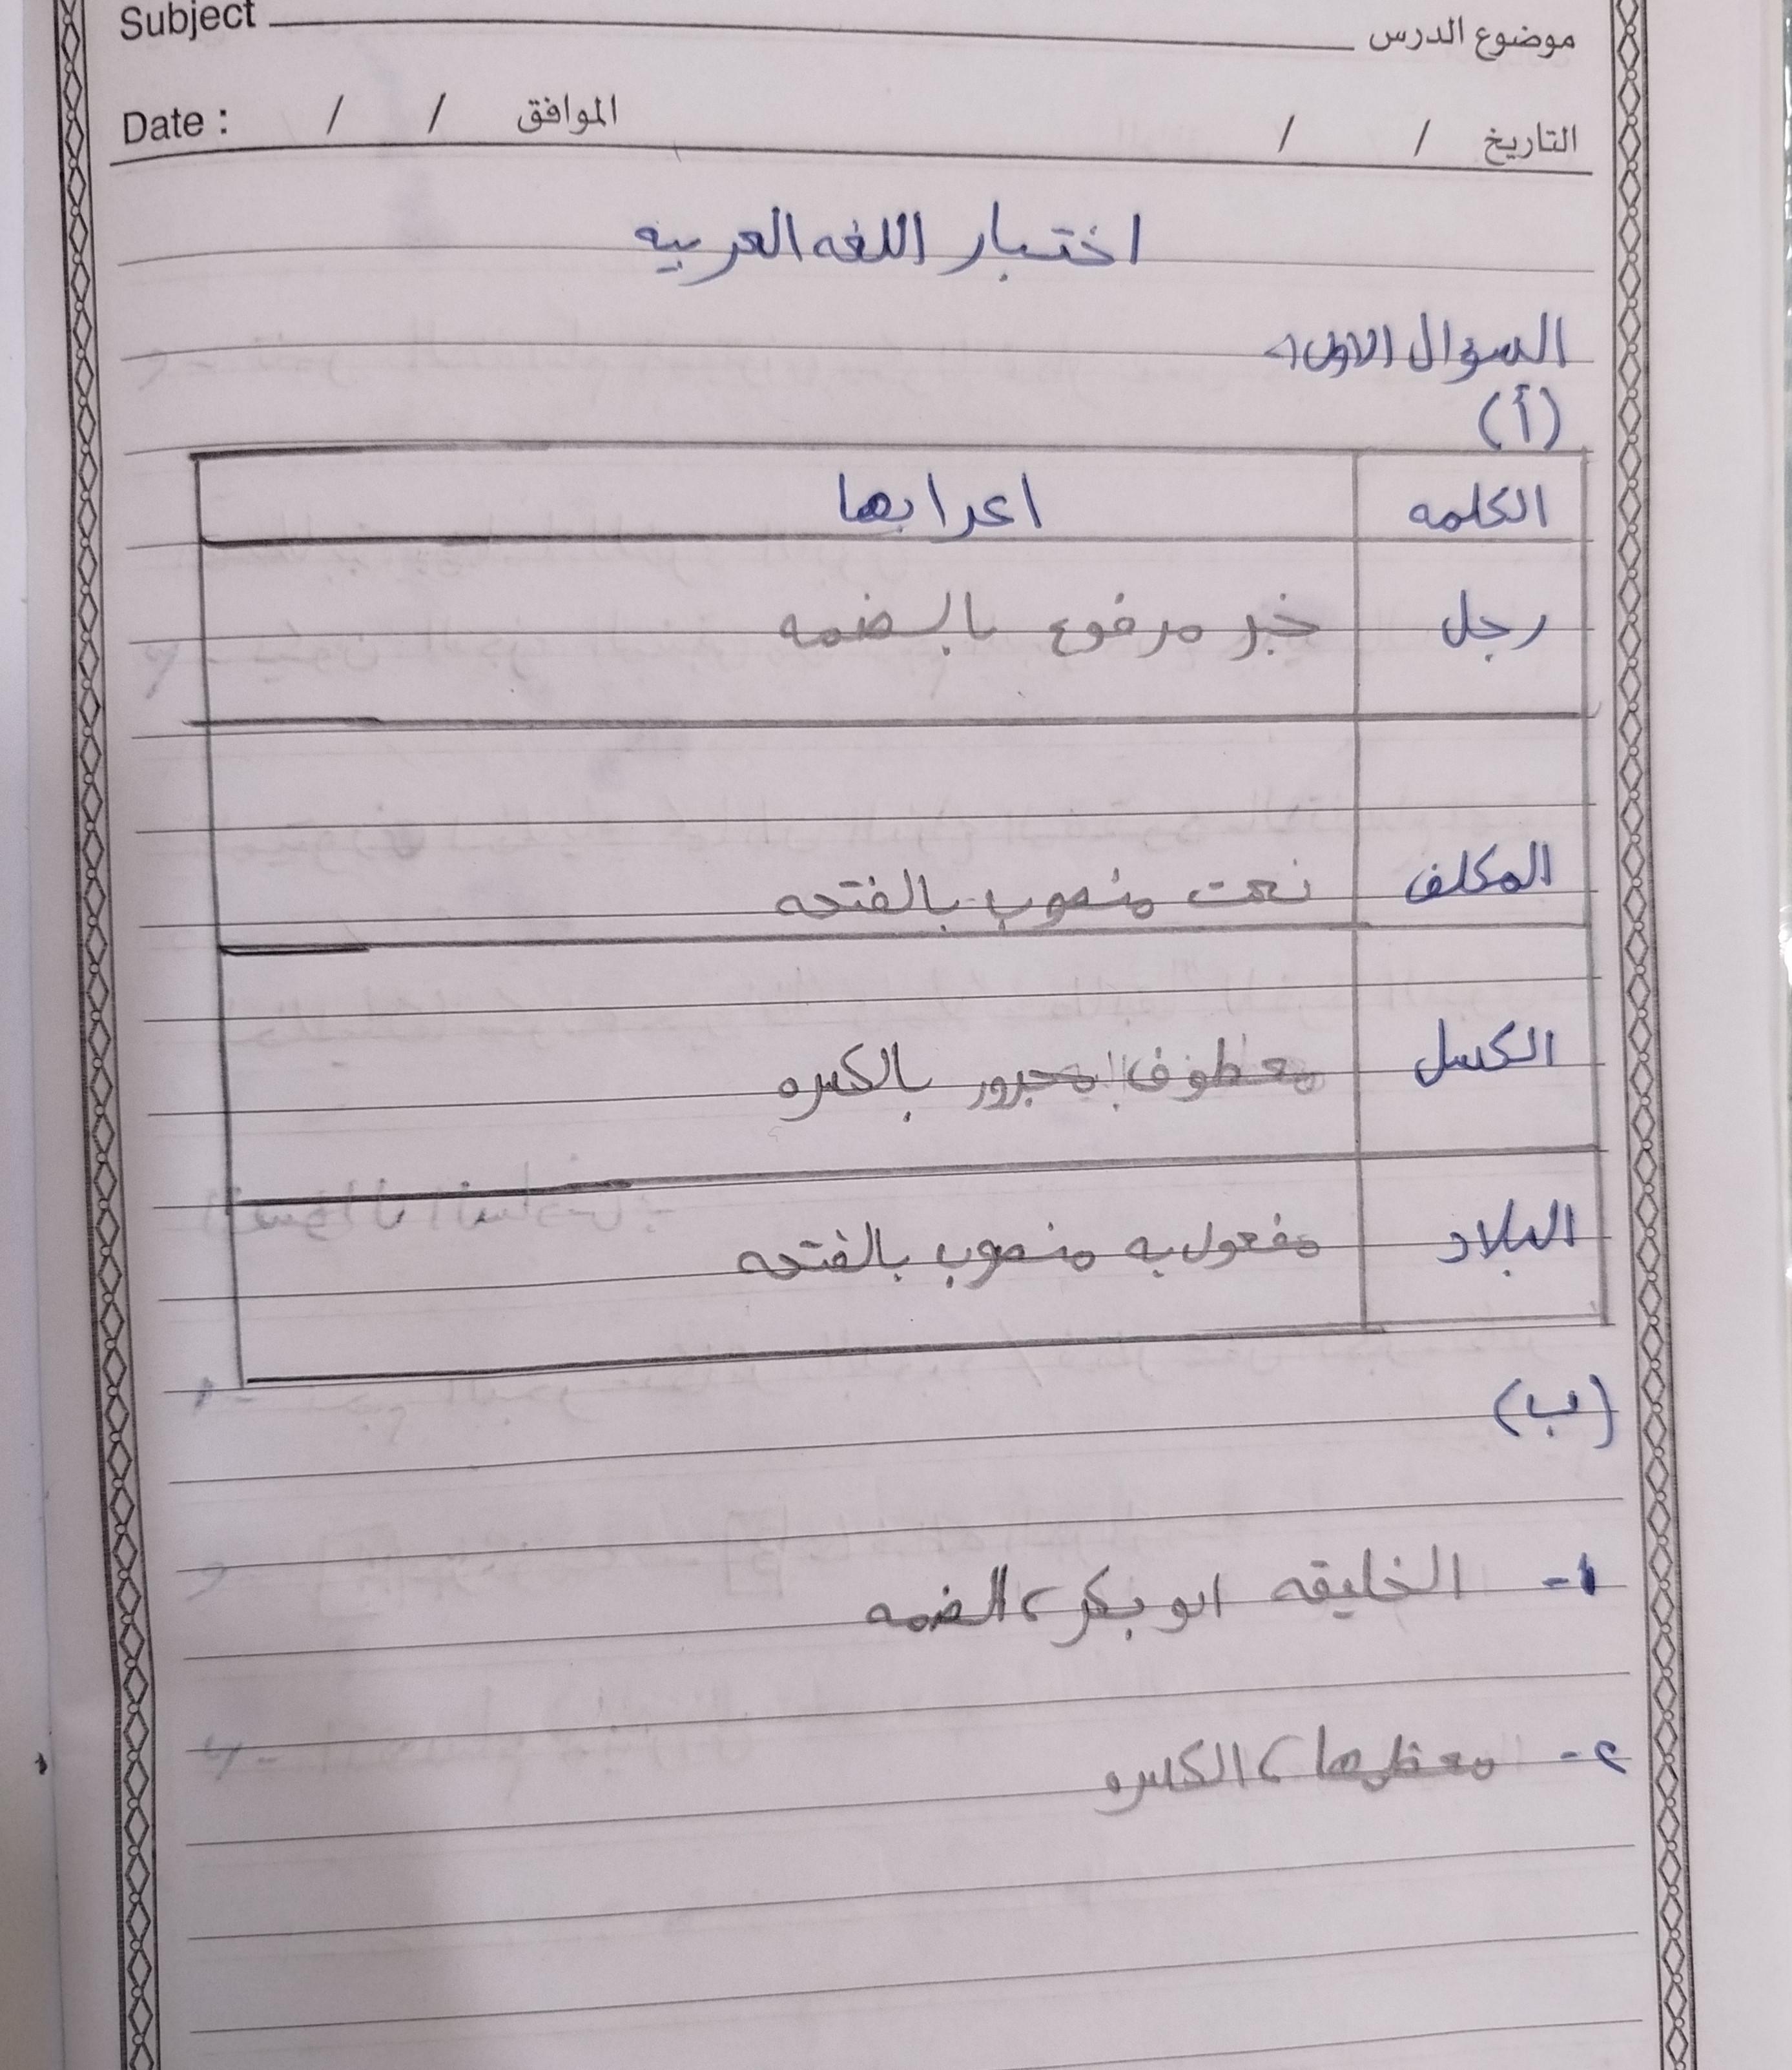 Subject موضوع الدرس
Date : / / الموافق / / التاريخ
اختبار اللغه العربيه
السؤال الاول
(أ)
الكلمه اعرابها
رجل خبر مرفوع بالضمه
المكلف نعت منصوب بالفتحه
الكسل معطوف مجرور بالكسره
البلاد مفعول به منصوب بالفتحه
(ب)
١- الخليفه ابو بكر، الضمه
٢- معظمها، الكسره